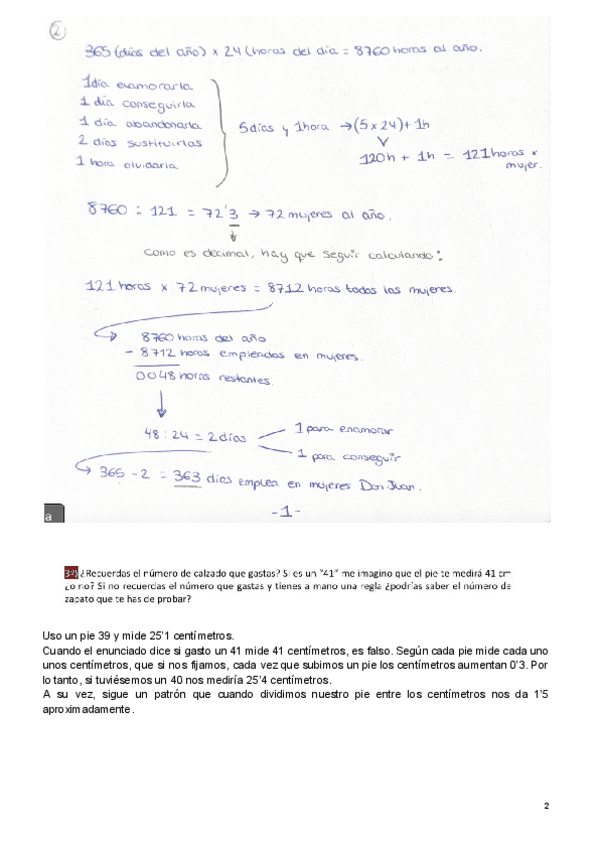 2
365 (días del año) x 24 (horas del día = 8760 horas al año.
1 día enamorarla
1 día conseguirla
1 día abandonarla
2 días sustituirlas
1 hora olvidarla
5 días y 1 hora → (5 x 24) + 1h
120h + 1h = 121 horas x
mujer.
8760 : 121 = 72'3 → 72 mujeres al año.
como es decimal, hay que seguir calculando:
121 horas x 72 mujeres = 8712 horas todas las mujeres.
8760 horas del año
- 8712 horas empleadas en mujeres.
0048 horas restantes.
48 : 24 = 2 días
1 para enamorar
1 para conseguir
365 - 2 = 363 días emplea en mujeres Don Juan.
a
-1-
3º) ¿Recuerdas el número de calzado que gastas? Si es un "41" me imagino que el pie te medirá 41 cm
¿o no? Si no recuerdas el número que gastas y tienes a mano una regla ¿podrías saber el número de
zapato que te has de probar?
Uso un pie 39 y mide 25'1 centímetros.
Cuando el enunciado dice si gasto un 41 mide 41 centímetros, es falso. Según cada pie mide cada uno
unos centímetros, que si nos fijamos, cada vez que subimos un pie los centímetros aumentan 0'3. Por
lo tanto, si tuviésemos un 40 nos mediría 25'4 centímetros.
A su vez, sigue un patrón que cuando dividimos nuestro pie entre los centímetros nos da 1'5
aproximadamente.
2